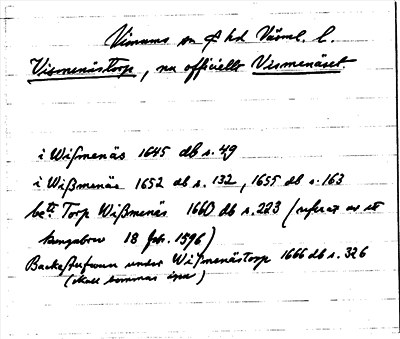 Visnums sn Ö hd Värml. l.
Vismenästorp, nu officiellt Vismenäset.
i Wißmenäs 1645 db s. 49
i Wißmenäs 1652 db s. 132, 1655 db s. 163
be:te Torp Wißmenäs 1660 db s. 223 (referat av et
kungabrev 18 febr. 1596)
Backastufwun under Wißmenästorp 1666 db s. 326
(skall kommas ihm)